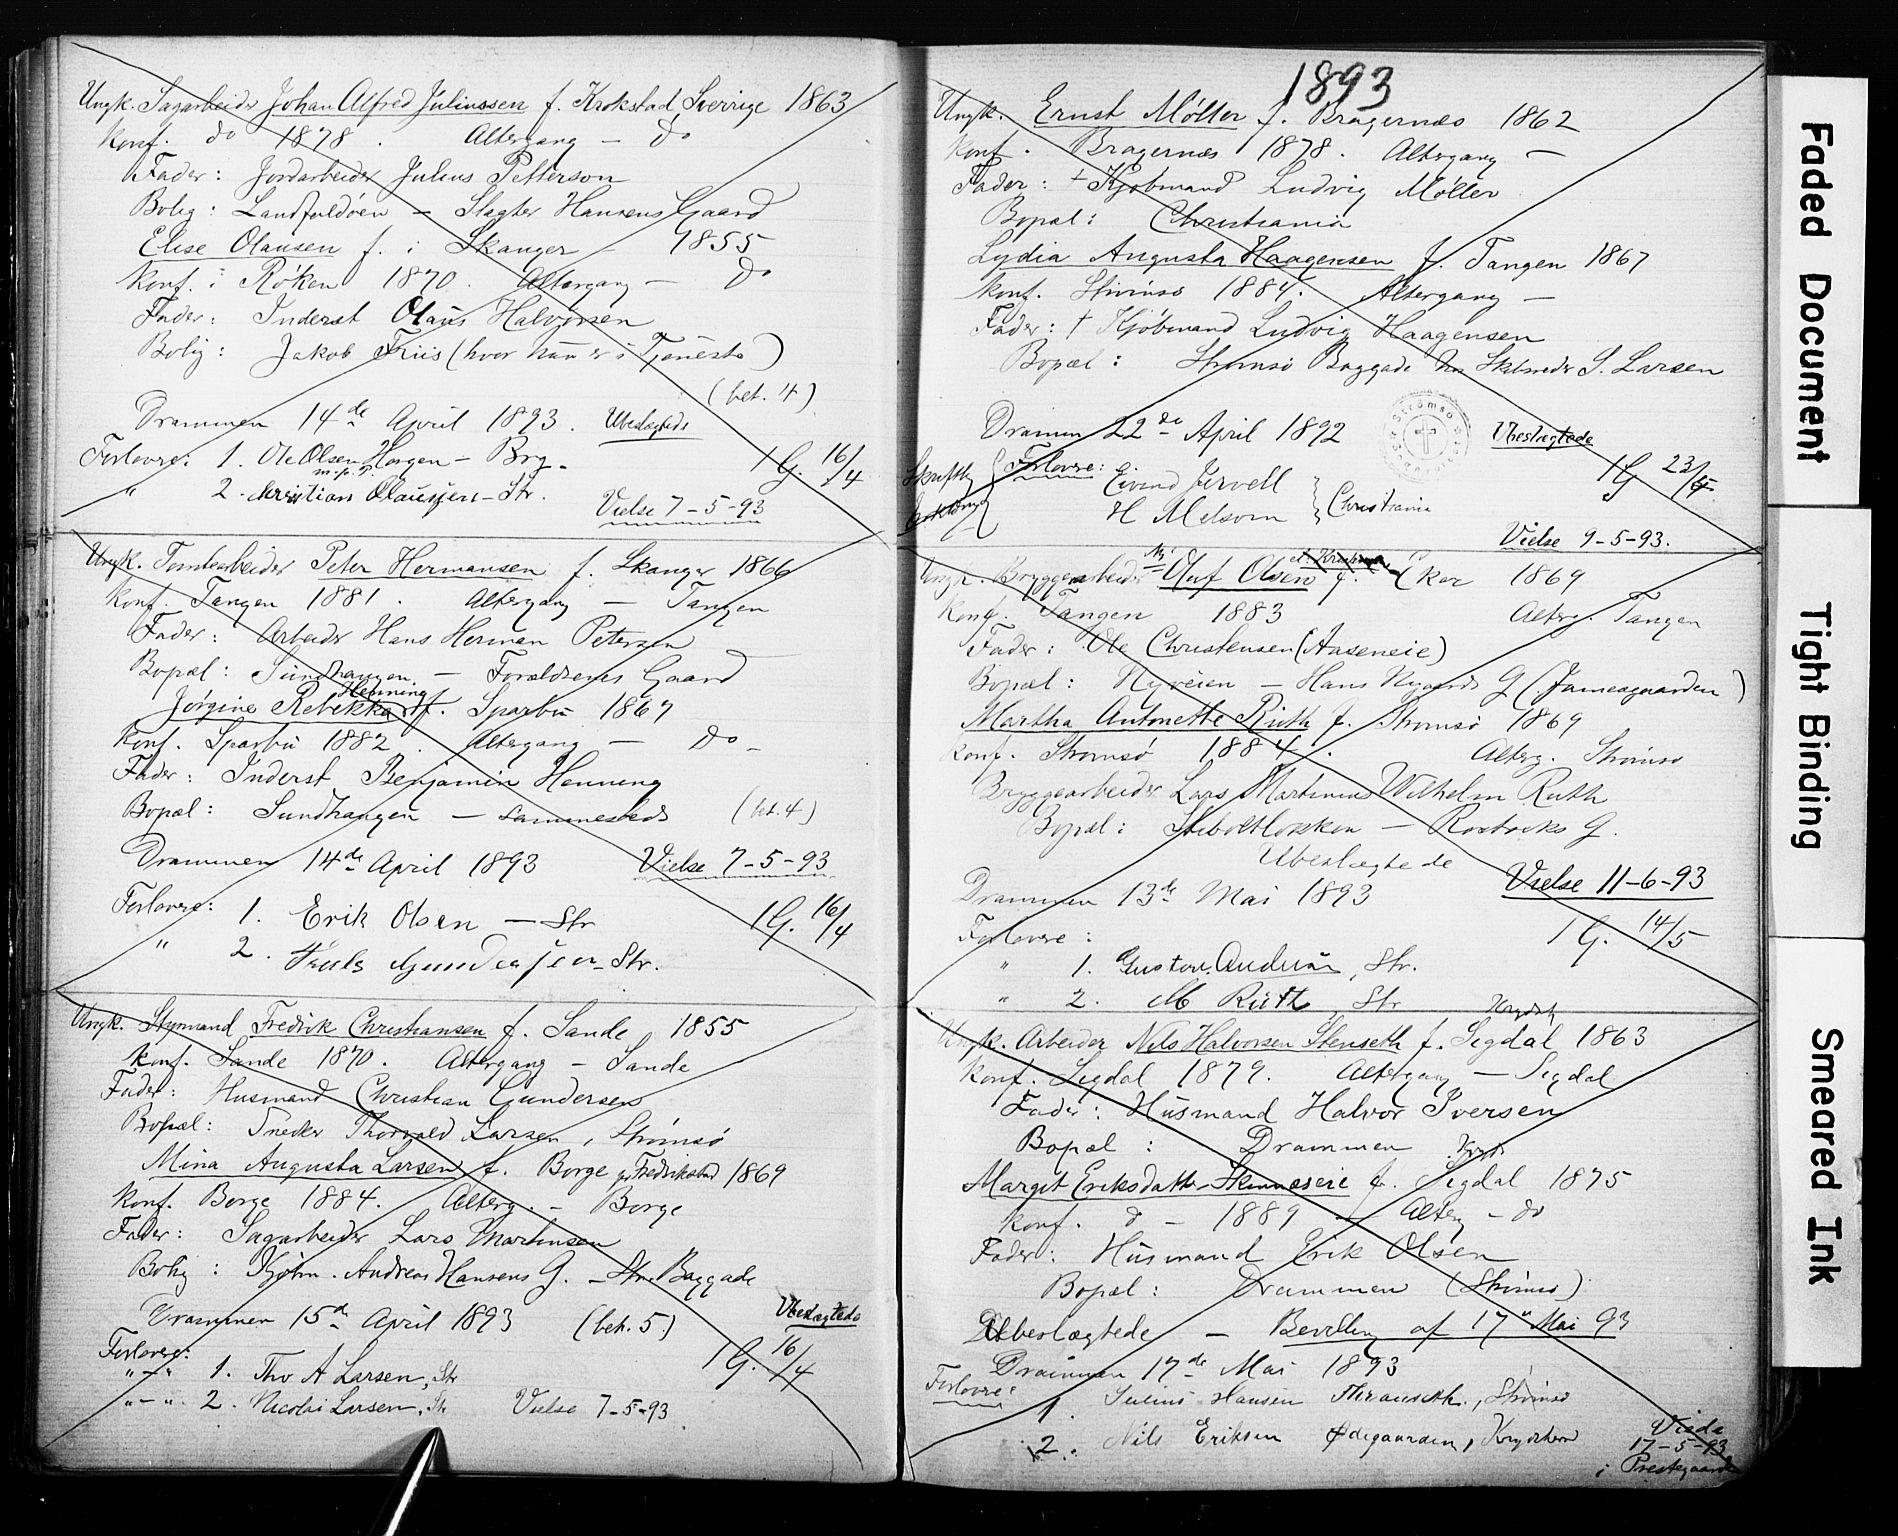 Ungk. Sagarbeider Johan Alfred Juliussen f. Krokstad Sverrige 1863
Konf. do 1878. Altergang — do
Fader: Jordarbeider Julius Petterson
Bolig: Landfaldøen — Slagter Hansens Gaard
Elise Olausen f. i Skanger 1855
Konf. i Røken 1870. Altergang — do
Fader: Inderst Olaus Halvorsen
Bolig: Jakob Friis (hvor hun er i Tjeneste)
(bet. 4)
Drammen 14de April 1893. Ubeslægtede
Forlovere: 1. Ole Olsen Horgen — Brg. 1 G. 16/4
m.p.P.
" 2. Christian Olaussen — Str.
Vielse 7-5-93
Ungk. Tomtearbeider Peter Hermansen f. Skanger 1866
Konf. Tangen 1881. Altergang — Tangen
Fader: Arbeider Hans Herman Petersen
Bopæl: Sundhaugen — Forældrenes Gaard
Jørgine Rebekka Henning f. Sparbu 1867
Konf. Sparbu 1882. Altergang — do —
Fader: Inderst Benjamin Henning
Bopæl: Sundhaugen — sammesteds (bet. 4)
Drammen 14de April 1893 Vielse 7-5-93
Forlovere: 1. Erik Olsen — Str 1 G. 16/4
" 2. Gundersen — Str.
Ungk. Styrmand Fredrik Christiansen f. Sande 1855
Konf. Sande 1870. Altergang — Sande
Fader: Husmand Christian Gundersen
Bopæl: Snedker Thorvald Larsen, Strømsø
Mina Augusta Larsen f. Borge pr Fredrikstad 1869
Konf. Borge 1884. Alterg. — Borge
Fader: Sagarbeider Lars Martinsen
Bolig: Kjøbm. Andreas Hansens G. — Str. Baggade
Drammen 15de April 1893 (bet. 5) Ubeslægtede
Forlovere: 1 G. 16/4
" — " 1. Tho A Larsen, Str
" — " 2. Nicolai Larsen, Str Vielse 7-5-93
1893
Ungk. Ernst Møller f. Bragernæs 1862
Konf. Bragernæs 1878. Altergang —
Fader: † Kjøbmand Ludvig Møller
Bopæl: Christiania
Lydia Augusta Haagensen f. Tangen 1867
Konf. Strømsø 1884. Altergang —
Fader: † Kjøbmand Ludvig Haagensen
Bopæl: Strømsø Baggade hos Skibsreder S. Larsen
Drammen 22de April 1892 Ubeslægtede
Strømsø
Forlovere: 1 G 23/4
Skriftlig Erklæring
Eivind Jervell
H Melsom } Christiania
Vielse 9-5-93.
Ungk. Bryggearbeider Oluf Olsen f. 1869
Konf. Tangen 1883 Alterg. Tangen
Fader: Ole Christensen (Aaseneie)
Bopæl: Nyveien — Hans Nygaards G (Jamesgaarden)
Martha Antonette Ruth f. Strømsø 1869
Konf. Strømsø 1884. Alterg. Strømsø
Bryggearbeider Lars Martinius Wilhelm Ruth
Bopæl: — G.
Ubeslægtede
Drammen 13de Mai 1893 Vielse 11-6-93
Forlovere: 1 G. 14/5
" 1. Gustav Andersen, Str.
" 2. M Ruth, Str
Ungk. Arbeider Nils Halvorsen Stenseth f. Sigdal 1863
Konf. Sigdal 1879. Altergang — Sigdal
Fader: Husmand Halvor Iversen
Bopæl: Drammen
Margit Eriksdatter Skinneseie f. Sigdal 1875
Konf. do — 1889 — Alterg — do
Fader: Husmand Erik Olsen
Bopæl: Drammen (Strømsø)
Ubeslægtede — Bevilling af 17de Mai 93
Drammen 17de Mai 1893
Forlovere:
1. Julius Hansen, Strømsø
2. Nils Eriksen Ødegaarden,
Viede
17-5-93
i Prestegaarden
Faded Document
Tight Binding
Smeared Ink